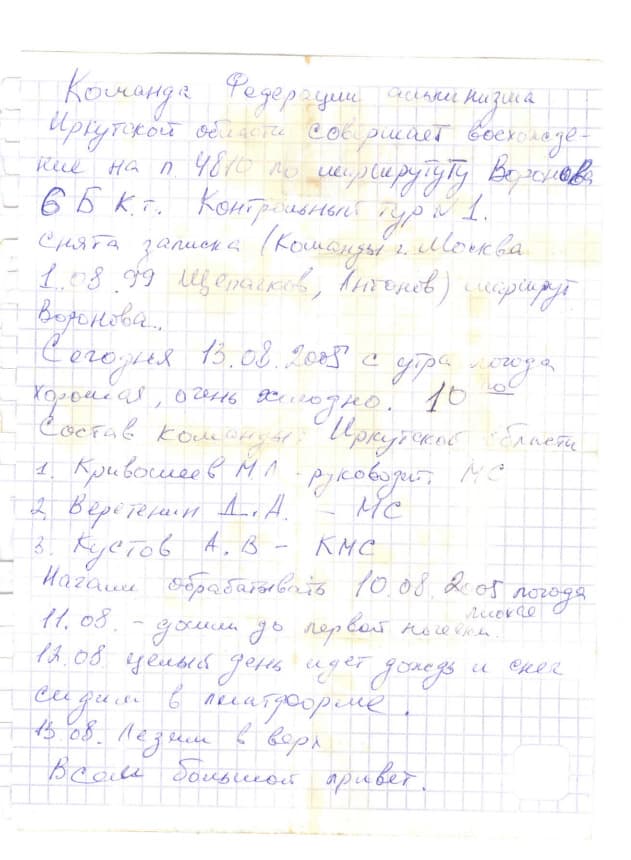 Команда Федерации альпинизма
Иркутской области совершает восхожде-
ние на п. 4810 по маршрутуту Воронова
6Б к.т. Контрольный тур №1.
Снята записка (Команды г. Москва
1.08.99 Щепачков, Антонов) маршрут
Воронова..
Сегодня 13.08.2005 с утра погода
хорошая, очень холодно. 10 00
Состав команды: Иркутской области
1. Кривошеев М.Л - руководит. МС
2. Веретенин Д.А. - МС
3. Кустов А.В - КМС
Начали обрабатывать 10.08.2005 погода
плохая
11.08. - дошли до первой ночевки.
12.08. целый день идет дождь и снег
сидим в платформе.
13.08. Лезем в верх
Всем большой привет.